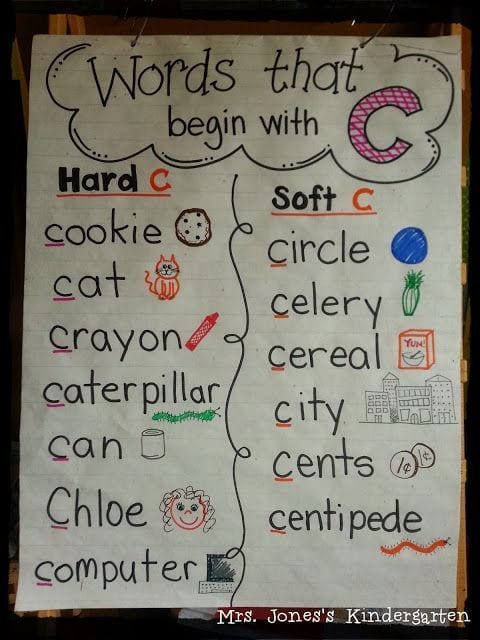 Words that
begin with C
Hard C
cookie
cat
crayon
caterpillar
can
Chloe
computer
Soft C
circle
celery
cereal
YUM!
city
cents
1¢ 1¢
centipede
Mrs. Jones's Kindergarten